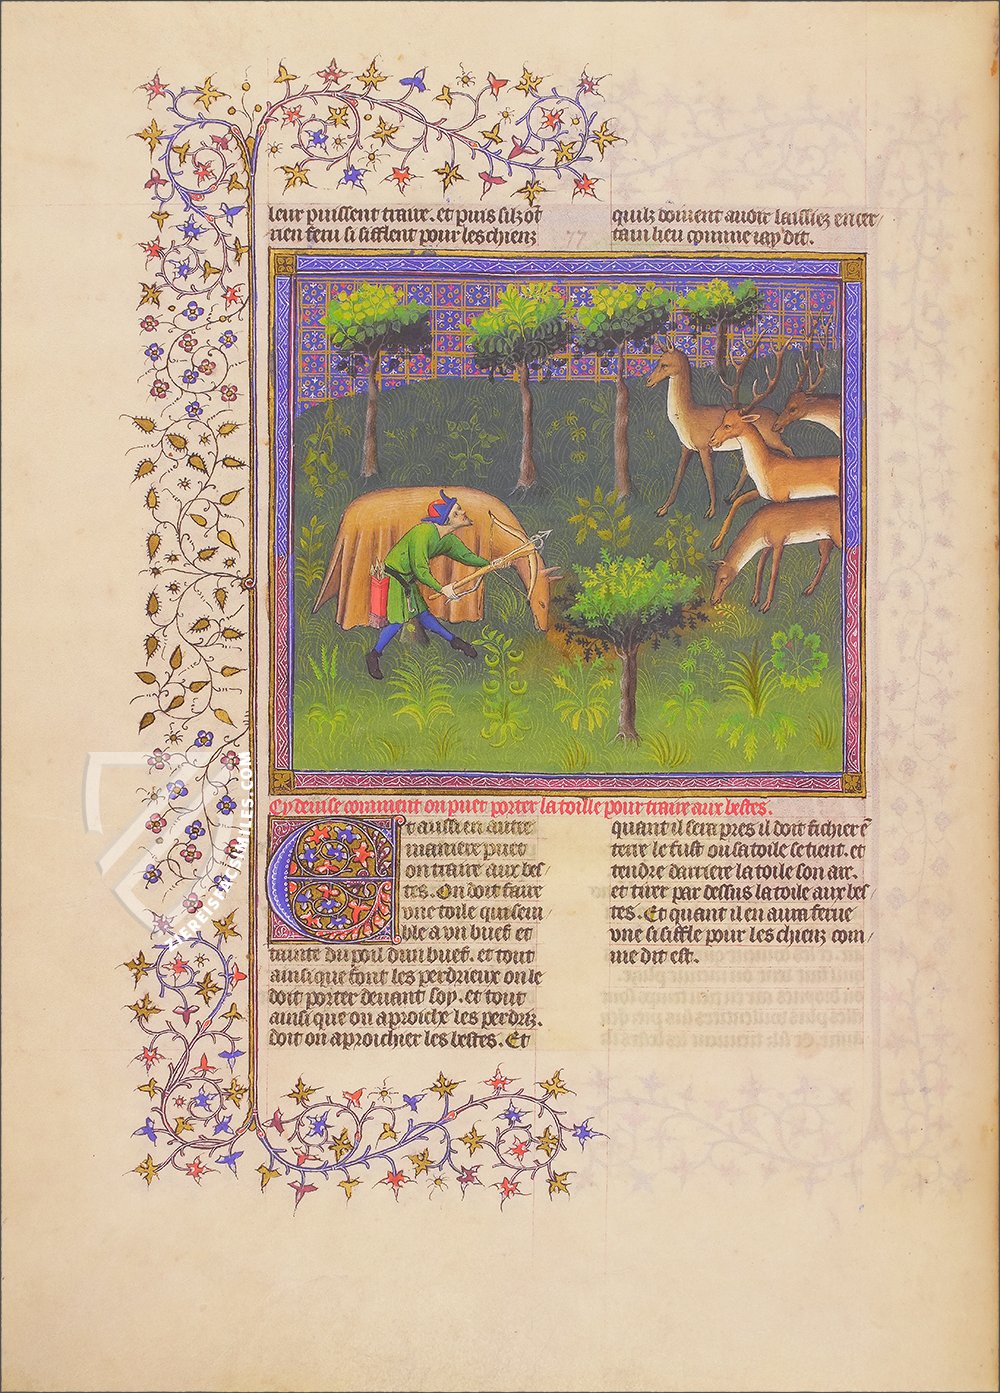 leur puissent traire. et puis silz ōt
rien feru si sifflent pour les chienz
quilz doivent avoir laissiez en cer
tain lieu comme iay dit.
77
Cy devise comment on puet porter la toille pour traire aux bestes.
Et aussi en autre
maniere puet
on traire aux bes
tes. On doit faire
une toile qui sem
ble a un buef et
tainte du poil dun buef. et tout
ainsi que font les perdrieux on le
doit porter devant soy. et tout
ainsi que on aproiche les perdriz.
doit on aproichier les bestes. Et
quant il sera pres il doit fichier ē
terre le fust ou sa toile se tient. et
tendre darriere la toile son arc.
et tirer par dessus la toile aux bes
tes. Et quant il en aura ferue
une si siffle pour les chienz com
me dit est.
ZIEREISFACSIMILES.COM